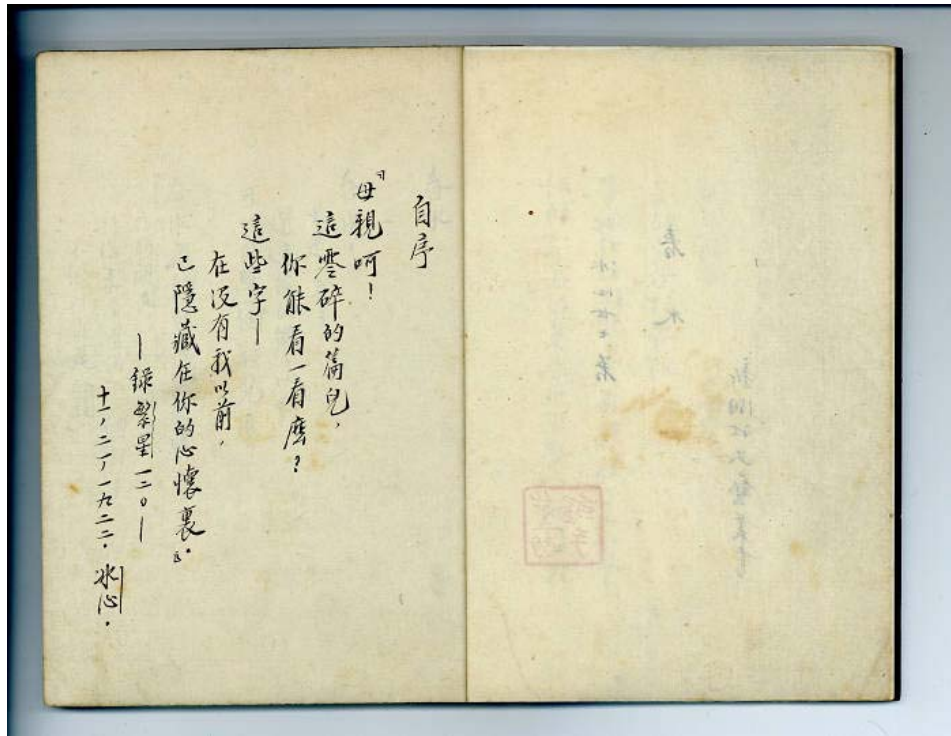 自序
『母親呵！
這零碎的篇兒，
你能看一看麽？
這些字—
在沒有我以前，
已隱藏在你的心懷裏。』
—錄繁星一二〇—
十一，二一，一九二二．冰心．
春水